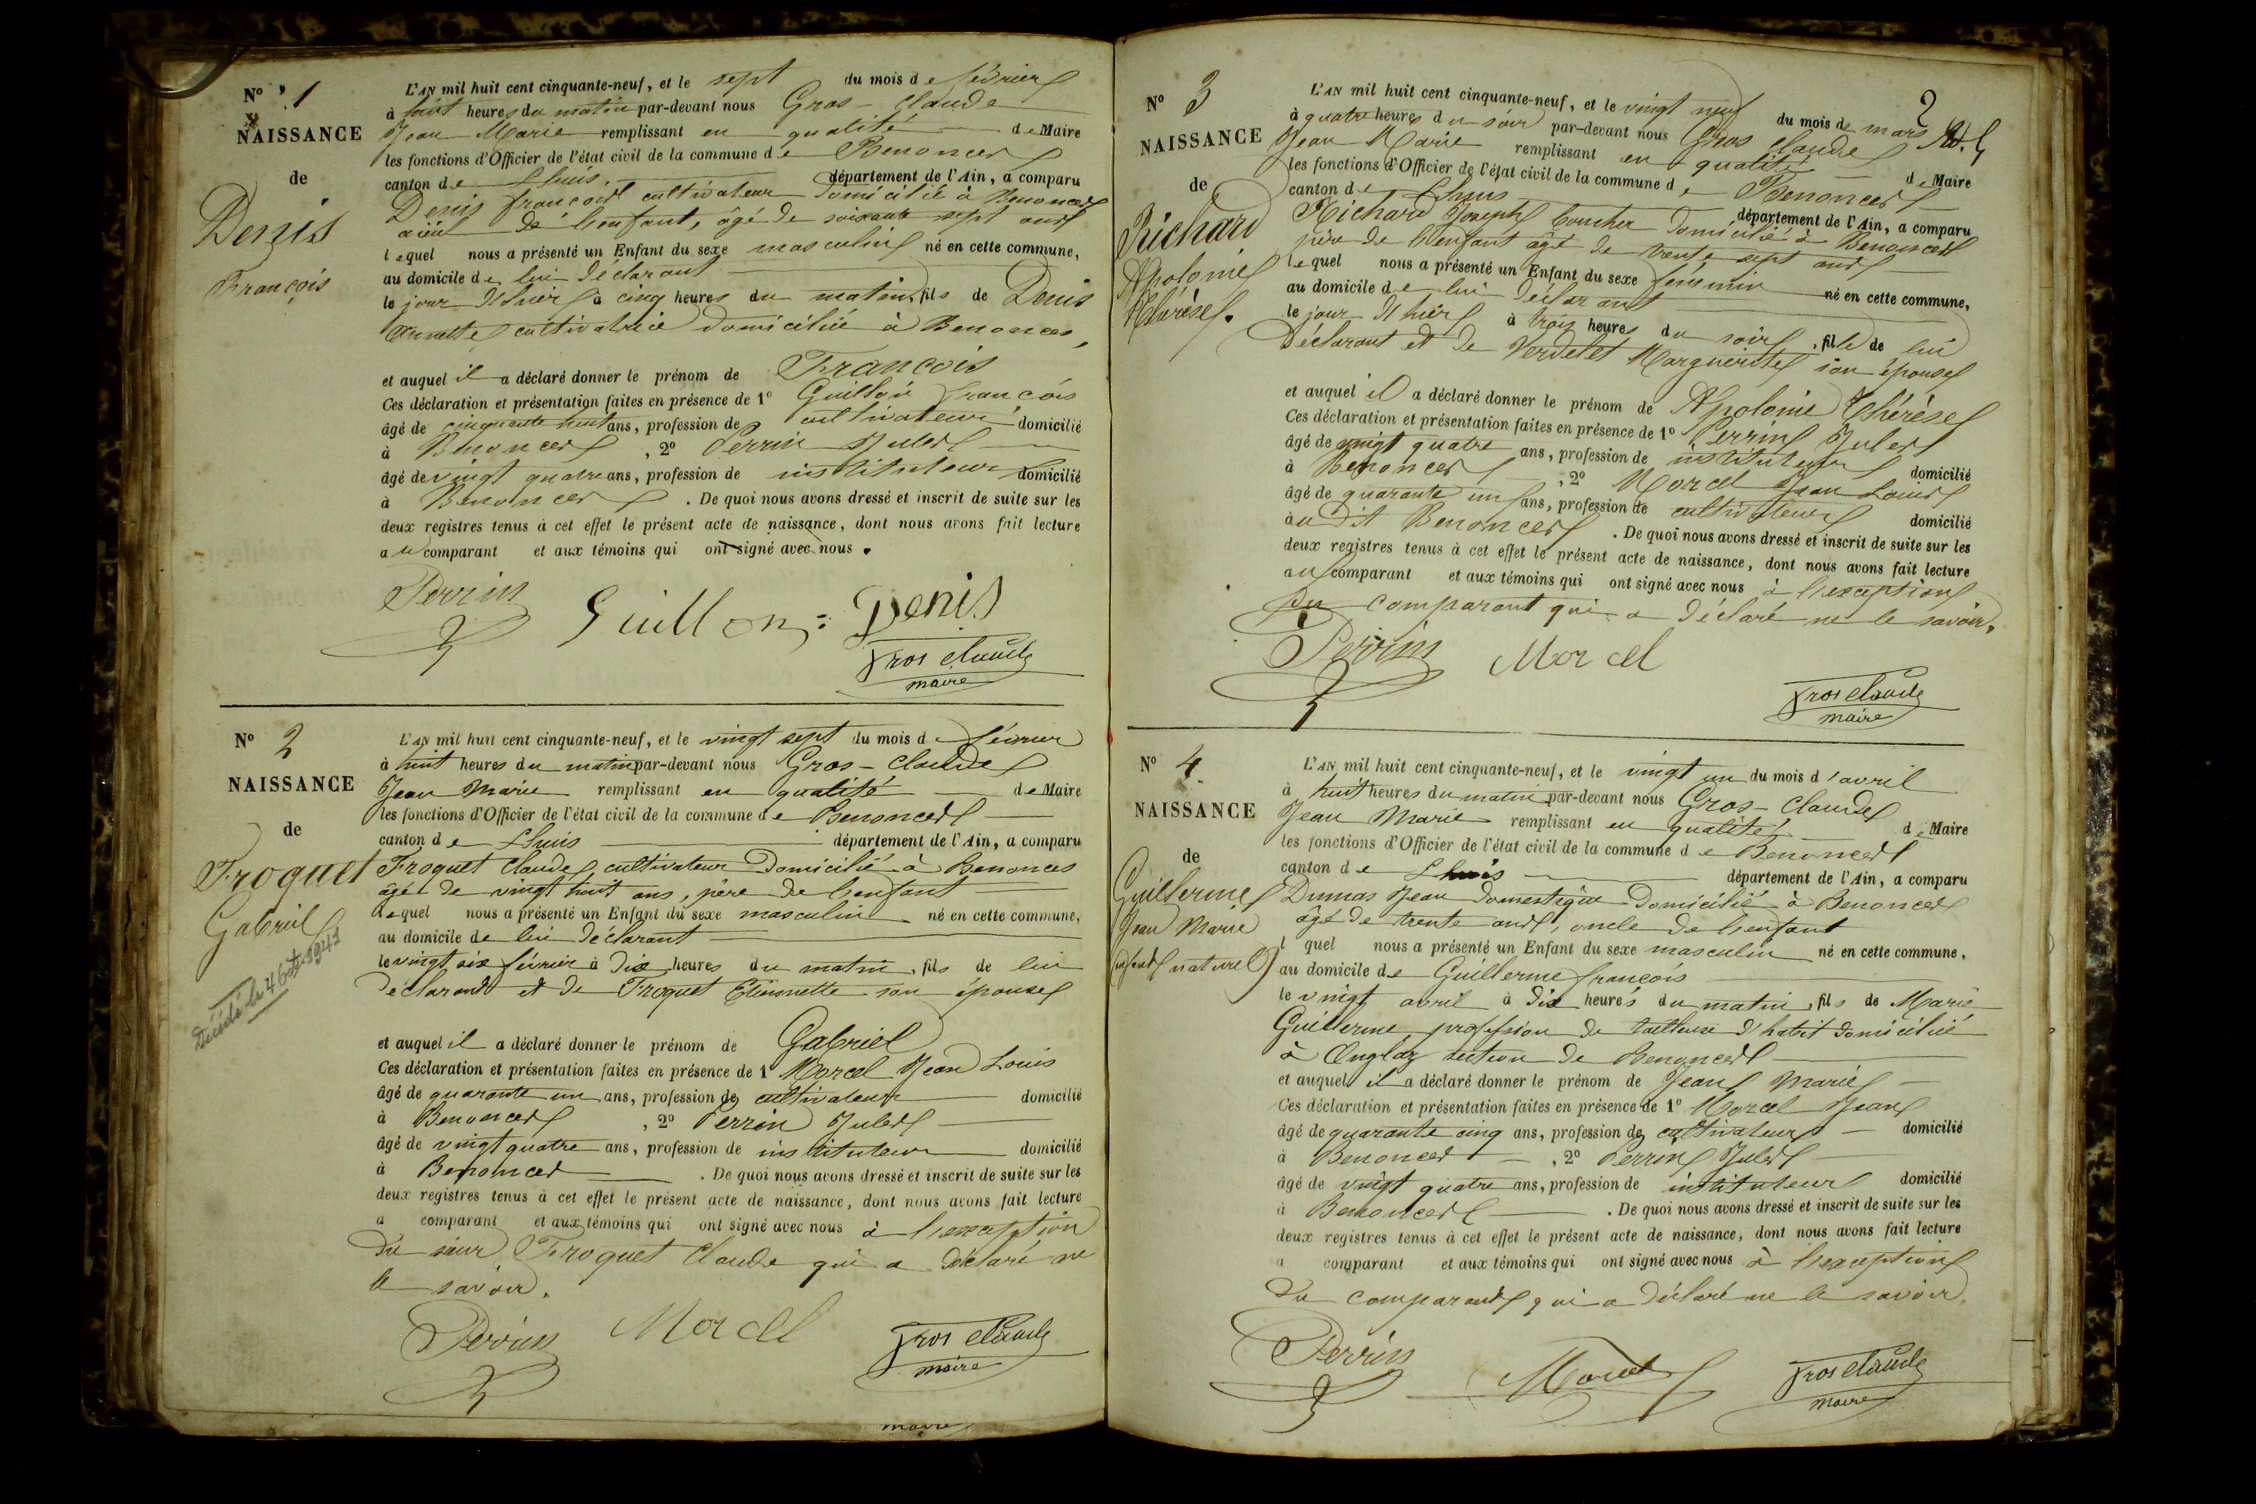 N° 1
NAISSANCE
de
Denis
François
L'AN mil huit cent cinquante-neuf, et le sept du mois de février
à huit heures du matin par-devant nous Gros-Claude
Jean Marie remplissant en qualité de Maire
les fonctions d'Officier de l'état civil de la commune de Benonces
canton de Lhuis. département de l'Ain, a comparu
Denis françois cultivateur domicilié à Benonces
aïeul de l'enfant, âgé de soixante sept ans
lequel nous a présenté un Enfant du sexe masculin né en cette commune,
au domicile de lui déclarant
le jour d'hier à cinq heures du matin, fils de Denis
Annette cultivatrice domiciliée à Benonces,
et auquel il a déclaré donner le prénom de François
Ces déclaration et présentation faites en présence de 1° Guillon françois
âgé de cinquante huit ans, profession de cultivateur domicilié
à Benonces, 2° Perrin Jules
âgé de vingt quatre ans, profession de instituteur domicilié
à Benonces. De quoi nous avons dressé et inscrit de suite sur les
deux registres tenus à cet effet le présent acte de naissance, dont nous avons fait lecture
au comparant et aux témoins qui ont signé avec nous.
Perrin Guillon Denis
Gros Claude
maire
N° 2
NAISSANCE
de
Froquet
Gabriel
Décédé le 4 Oct. 1943
L'AN mil huit cent cinquante-neuf, et le vingt sept du mois de février
à huit heures du matin par-devant nous Gros-Claude
Jean Marie remplissant en qualité de Maire
les fonctions d'Officier de l'état civil de la commune de Benonces
canton de Lhuis département de l'Ain, a comparu
Froquet Claude cultivateur domicilié à Benonces
âgé de vingt huit ans, père de l'enfant
lequel nous a présenté un Enfant du sexe masculin né en cette commune,
au domicile de lui déclarant
le vingt six février à dix heures du matin, fils de lui
déclarant et de Froquet Etiennette son épouse
et auquel il a déclaré donner le prénom de Gabriel
Ces déclaration et présentation faites en présence de 1° Morcel Jean Louis
âgé de quarante un ans, profession de cultivateur domicilié
à Benonces, 2° Perrin Jules
âgé de vingt quatre ans, profession de instituteur domicilié
à Benonces. De quoi nous avons dressé et inscrit de suite sur les
deux registres tenus à cet effet le présent acte de naissance, dont nous avons fait lecture
a comparant et aux témoins qui ont signé avec nous à l'exception
du sieur Froquet Claude qui a déclaré ne
le savoir.
Perrin Morcel Gros Claude
maire
maire
2
N° 3
NAISSANCE
de
Richard
Apolonie
Thérèse.
L'AN mil huit cent cinquante-neuf, et le vingt neuf du mois de mars
à quatre heures du soir par-devant nous Gros Claude
Jean Marie remplissant en qualité de Maire
les fonctions d'Officier de l'état civil de la commune de Benonces
canton de Lhuis département de l'Ain, a comparu
Richard Joseph boucher domicilié à Benonces
père de l'enfant âgé de trente sept ans
lequel nous a présenté un Enfant du sexe féminin né en cette commune,
au domicile de lui déclarant
le jour d'hier à trois heures du soir, fille de lui
déclarant et de Verdelet Marguerite son épouse
et auquel il a déclaré donner le prénom de Apolonie Thérèse
Ces déclaration et présentation faites en présence de 1° Perrin Jules
âgé de vingt quatre ans, profession de instituteur domicilié
à Benonces, 2° Morcel Jean Louis
âgé de quarante un ans, profession de cultivateur domicilié
au dit Benonces. De quoi nous avons dressé et inscrit de suite sur les
deux registres tenus à cet effet le présent acte de naissance, dont nous avons fait lecture
au comparant et aux témoins qui ont signé avec nous à l'exception
du comparant qui a déclaré ne le savoir.
Perrin Morcel
Gros Claude
maire
N° 4
NAISSANCE
de
Guillerme
Jean Marie
(enfant naturel)
L'AN mil huit cent cinquante-neuf, et le vingt un du mois d'avril
à huit heures du matin par-devant nous Gros-Claude
Jean Marie remplissant en qualité de Maire
les fonctions d'Officier de l'état civil de la commune de Benonces
canton de Lhuis département de l'Ain, a comparu
Dumas Jean domestique domicilié à Benonces
âgé de trente ans, oncle de l'enfant
l quel nous a présenté un Enfant du sexe masculin né en cette commune,
au domicile de Guillerme françois
le vingt avril à dix heures du matin, fils de Marie
Guillerme profession de tailleuse d'habit domiciliée
à Onglas section de Benonces
et auquel il a déclaré donner le prénom de Jean Marie
Ces déclaration et présentation faites en présence de 1° Morcel Jean
âgé de quarante cinq ans, profession de cultivateur domicilié
à Benonces, 2° Perrin Jules
âgé de vingt quatre ans, profession de instituteur domicilié
à Benonces. De quoi nous avons dressé et inscrit de suite sur les
deux registres tenus à cet effet le présent acte de naissance, dont nous avons fait lecture
a comparant et aux témoins qui ont signé avec nous à l'exception
du comparant qui a déclaré ne le savoir.
Perrin Morcel Gros Claude
maire